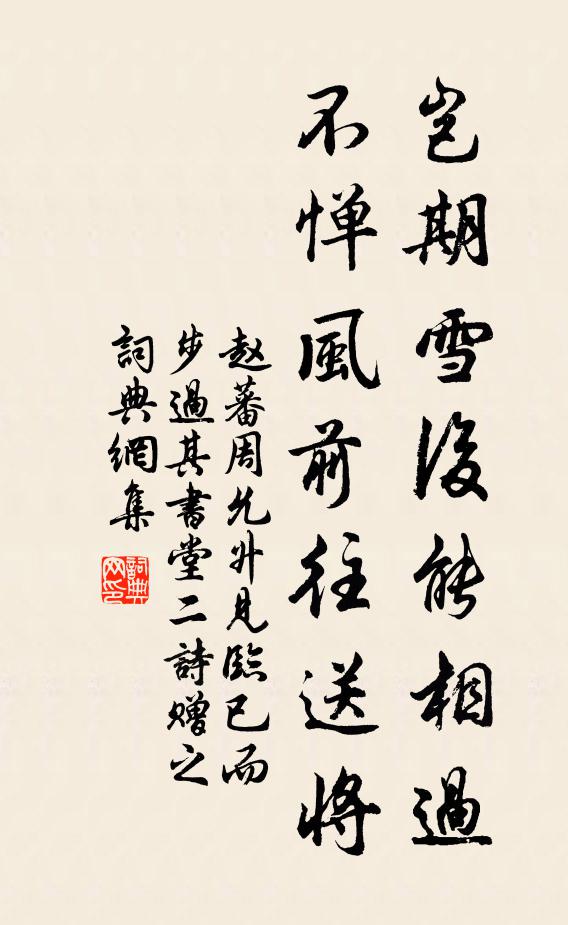 岂期雪後能相過
不惮風前往送將
赵蕃周允升見臨已而
步過其書堂二詩赠之
詞典網集
詞典网印